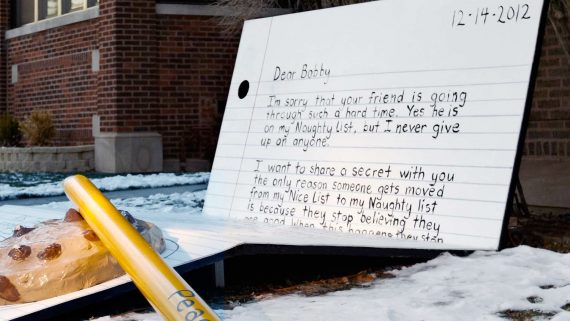 12-14-2012
Dear Bobby
I'm sorry that your friend is going
through such a hard time. Yes he is
on my Noughty List, but I never give
up on anyone.
I want to share a secret with you
the only reason someone gets moved
from my Nice List to my Naughty list
is because they stop believing they
are good when this happens they stop
Pea